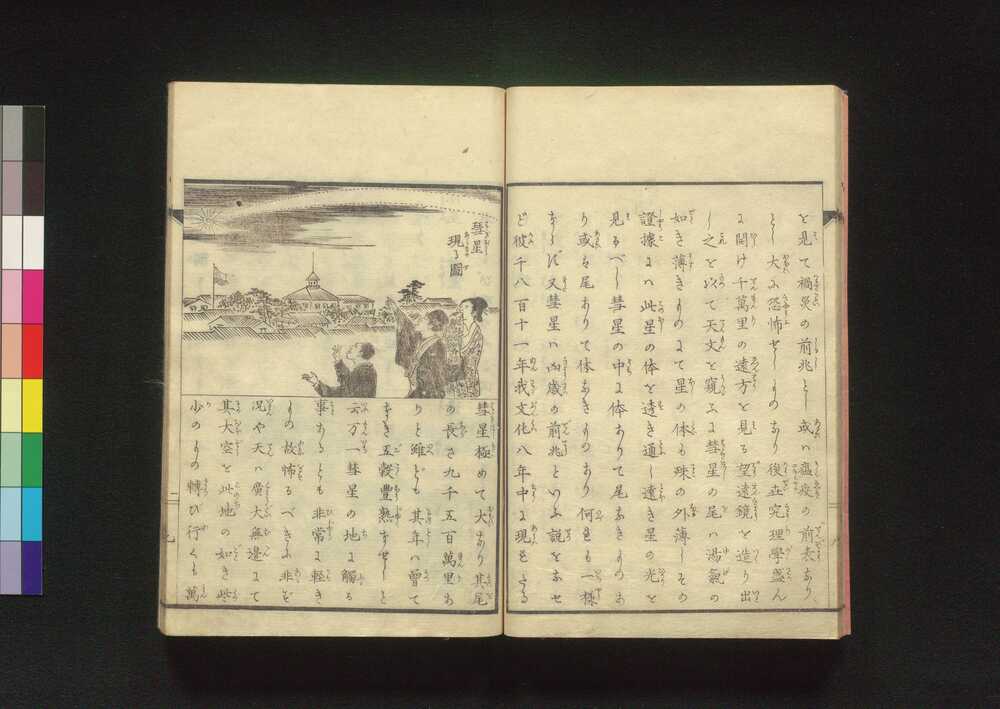 を見て禍災の前兆とし或ハ瘟疫の前表なり
とし大に恐怖せしものなり後世究理學盛ん
に開け千萬里の遠方を見る望遠鏡を造り出
し之を以て天文を窺ふに彗星の尾ハ湯氣の
如き薄きものにて星の体も殊の外薄しその
證據にハ此星の体を透き通し遠き星の光を
見るべし彗星の中に体ありて尾なきものあ
り或ハ尾ありて体なきものあり何色も一様
ならず又彗星ハ凶歳の前兆といふ説をなせ
ど彼千八百十一年我文化八年中に現をたる
彗星
現る圖
彗星極めて大なり其尾
の長さ九千五百萬里あ
りと雖ども其年ハ曽て
なき五穀豊熟なせしと
云万一彗星の地に觸る
事あるとも非常に軽き
もの故怖るべきに非ず
况や天ハ廣大無邊にて
其大空を此地の如き些
少のもの轉び行くも萬